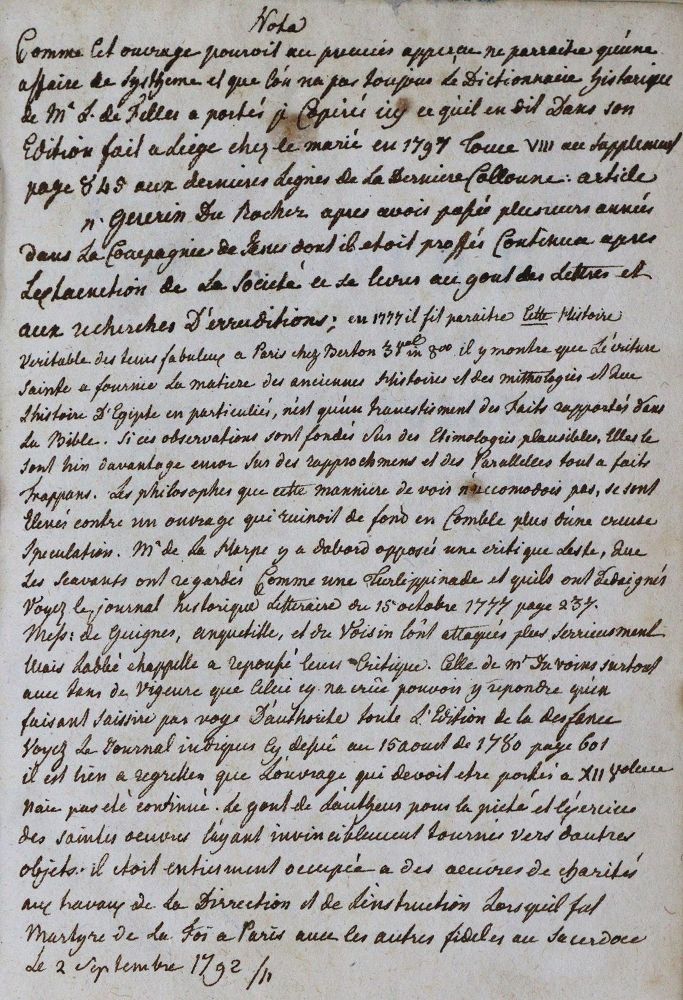 Nota
Comme Cet ouvrage pouroit au premier apperçu ne parraitre qu'une
affaire de systheme et que l'on n'a pas toujous Le Dictionnaire historique
de Mr L. de Felles a portés je Copirés icy ce qu'il en dit Dans son
Edition fait a Liége chez le marié en 1797 Tome VIII au supplement
page 845 aux dernieres Legnes de La Derniere Collonne: article
n. Gererin Du Rocher apres avois passée plusieurs année
dans La Compagnie de Jesus dont il etoit proffés Continua apres
L'extainction de La Société a se livrer au gout des Lettres et
aux recherches D'erruditions; en 1777 il fit paraitre Cette Histoire
Veritable des tems fabuleux a Paris chez Berton 3 vol in 8oo il y montre que L'écriture
Sainte a fournie La matiere des anciennes Histoires et des mithologies et que
L'histoire D'Egipte en particuliés, n'est qu'un travestisment des Faits rapportés dans
La Bible. Si ces observations sont fondés sur des Etimologies plausibles, Elles le
sont bien davantage encor sur des rapprochmens et des Paralleles tout a faits
frappans. Les philosophes que cette manniere de vois n'accomodois pas, se sont
Elevés contre un ouvrage qui ruinoit de fond en Comble plus d'une creuse
speculation. Mr de La Harpe y a d'abord opposés une critique Leste, que
Les scavants ont regardés Comme une Turlippinade et qu'ils ont Dedaignés
Voyez le journal historique & Litteraire du 15 octobre 1777 page 237.
Mess: de Guignes, anquetille, et du Voisin l'ont attaqués plus serrieusment
Mais L'abbé chappelle a repoussé leurs Critique. Celle de mr du voins surtout
avec tans de Vigeure que Celui cy n'a crûe pouvois y repondre qu'en
faisant saissire par voye D'authorité toute L'Edition de la deffence
Voyez Le Journal indiqus Cy depuë au 15 aoust de 1780 page 601
il est bien a regretter que L'ouvrage qui devoit etre portés a XII volume
n'aie pas été continué. Le gout de L'autheur pour la piété et L'exercice
des saintes oeuvres L'ayant invinciblement tournés vers d'autres
objets. il etoit entierment occupée a des oeuvres de charités
aux travaux de La Dirrection et de L'instruction Lorsqu'il fut
Martyre de La Foi a Paris avec les autres fideles au sacerdoce
Le 2 Septembre 1792 //